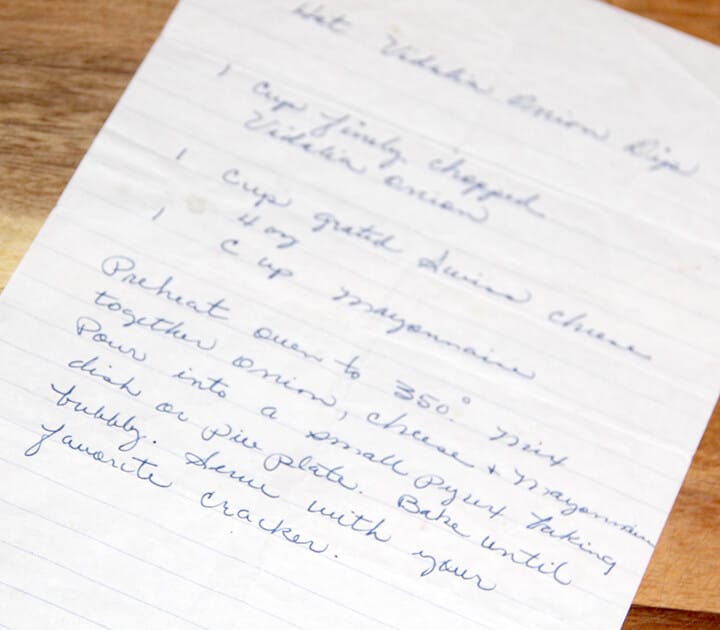 Hot Vidalia Onion Dip
1 cup finely chopped
Vidalia onion
1 cup grated Swiss cheese
4 oz
1 cup mayonnaise
Preheat oven to 350° Mix
together onion, cheese + mayonnaise
Pour into a small pyrex baking
dish or pie plate. Bake until
bubbly. Serve with your
favorite cracker.